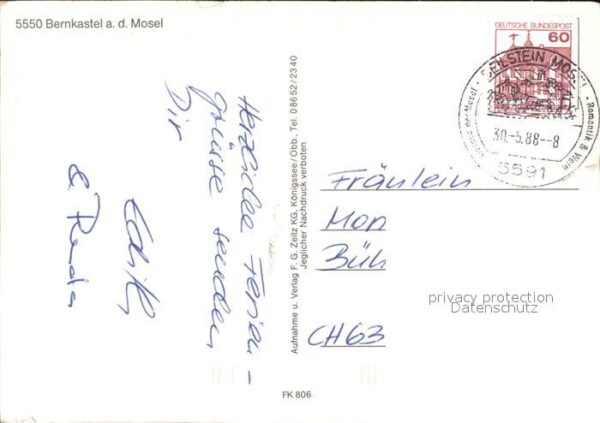 5550 Bernkastel a. d. Mosel
Herzliche Ferien-
grüsse senden
Dir
Edith
&
Aufnahme u. Verlag F. G. Zeitz KG, Königssee/Obb., Tel. 08652/2340
Jeglicher Nachdruck verboten
FK 806
DEUTSCHE BUNDESPOST
60
BEILSTEIN MOSEL
der Mosel · Romantik & Wein
30.-5.88--8
5591
Fräulein
Mon
Büh
CH 63
privacy protection
Datenschutz